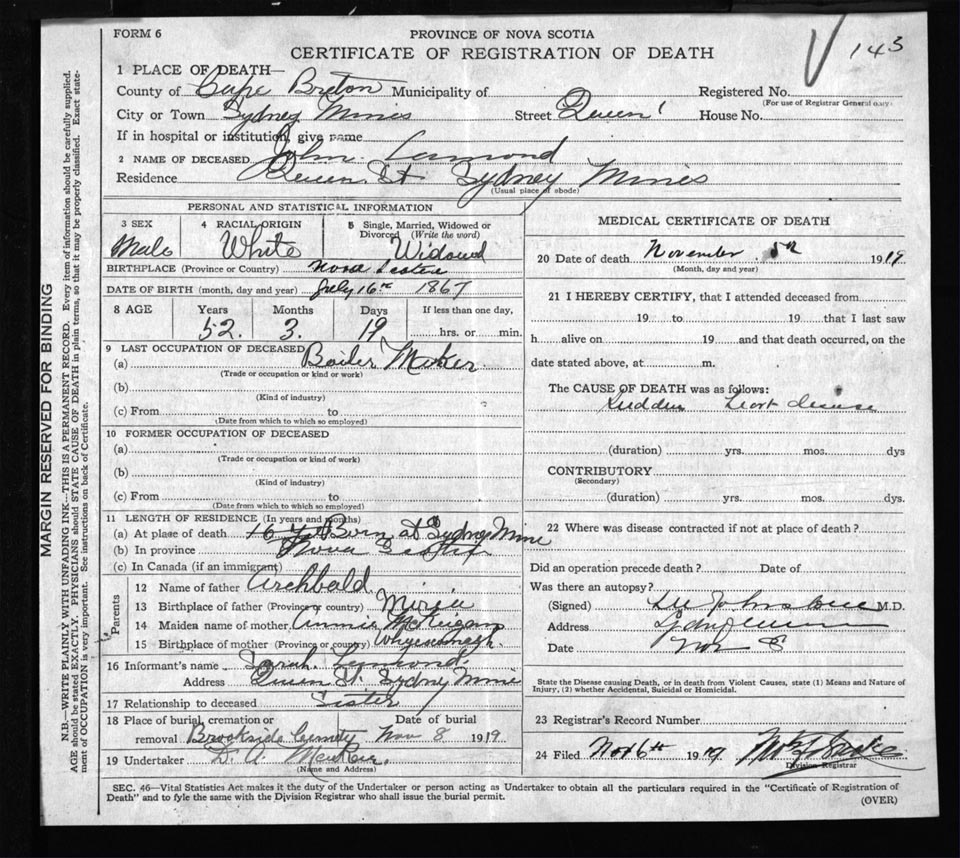 FORM 6
PROVINCE OF NOVA SCOTIA
CERTIFICATE OF REGISTRATION OF DEATH
143
1 PLACE OF DEATH—
County of Cape Breton Municipality of Registered No.
(For use of Registrar General only
City or Town Sydney Mines Street Queen House No.
If in hospital or institution, give name
2 NAME OF DECEASED John Lamond
Residence Queen St Sydney Mines
(Usual place of abode)
PERSONAL AND STATISTICAL INFORMATION
3 SEX 4 RACIAL ORIGIN 5 Single, Married, Widowed or Divorced (Write the word)
Male White Widowed
BIRTHPLACE (Province or Country) Nova Scotia
DATE OF BIRTH (month, day and year) July 16th 1867
8 AGE Years Months Days If less than one day,
52. 3. 19 hrs. or min.
9 LAST OCCUPATION OF DECEASED
(a) Boiler Maker
(Trade or occupation or kind or work)
(b)
(Kind of industry)
(c) From to
(Date from which to which so employed)
10 FORMER OCCUPATION OF DECEASED
(a)
(Trade or occupation or kind of work)
(b)
(Kind of industry)
(c) From to
(Date from which to which so employed)
11 LENGTH OF RESIDENCE (In years and months)
(a) At place of death Born at Sydney Mine
(b) In province Nova Scotia
(c) In Canada (if an immigrant)
Parents
12 Name of father Archbald
13 Birthplace of father (Province or country) Mira
14 Maiden name of mother Annie McKeigan
15 Birthplace of mother (Province or country)
16 Informant's name Sarah Lamond
Address Queen St. Sydney Mine
17 Relationship to deceased Sister
18 Place of burial, cremation or removal Brookside Date of burial Nov 8 1919
19 Undertaker D. A.
(Name and Address)
MEDICAL CERTIFICATE OF DEATH
20 Date of death November 5th 1919
(Month, day and year)
21 I HEREBY CERTIFY, that I attended deceased from
19 to 19 that I last saw
h alive on 19 and that death occurred, on the
date stated above, at m.
The CAUSE OF DEATH was as follows:
Sudden Heart disease
(duration) yrs. mos. dys
CONTRIBUTORY
(Secondary)
(duration) yrs. mos. dys.
22 Where was disease contracted if not at place of death?
Did an operation precede death? Date of
Was there an autopsy?
(Signed) M.D.
Address
Date Nov 8
State the Disease causing Death, or in death from Violent Causes, state (1) Means and Nature of
Injury, (2) whether Accidental, Suicidal or Homicidal.
23 Registrar's Record Number
24 Filed Nov 6th 1919
Division Registrar
SEC. 46—Vital Statistics Act makes it the duty of the Undertaker or person acting as Undertaker to obtain all the particulars required in the "Certificate of Registration of
Death" and to fyle the same with the Division Registrar who shall issue the burial permit.
(OVER)
MARGIN RESERVED FOR BINDING
N.B.—WRITE PLAINLY WITH UNFADING INK—THIS IS A PERMANENT RECORD. Every item of information should be carefully supplied.
AGE should be stated EXACTLY. PHYSICIANS should STATE CAUSE OF DEATH in plain terms, so that it may be properly classified. Exact state-
ment of OCCUPATION is very important. See instructions on back of Certificate.